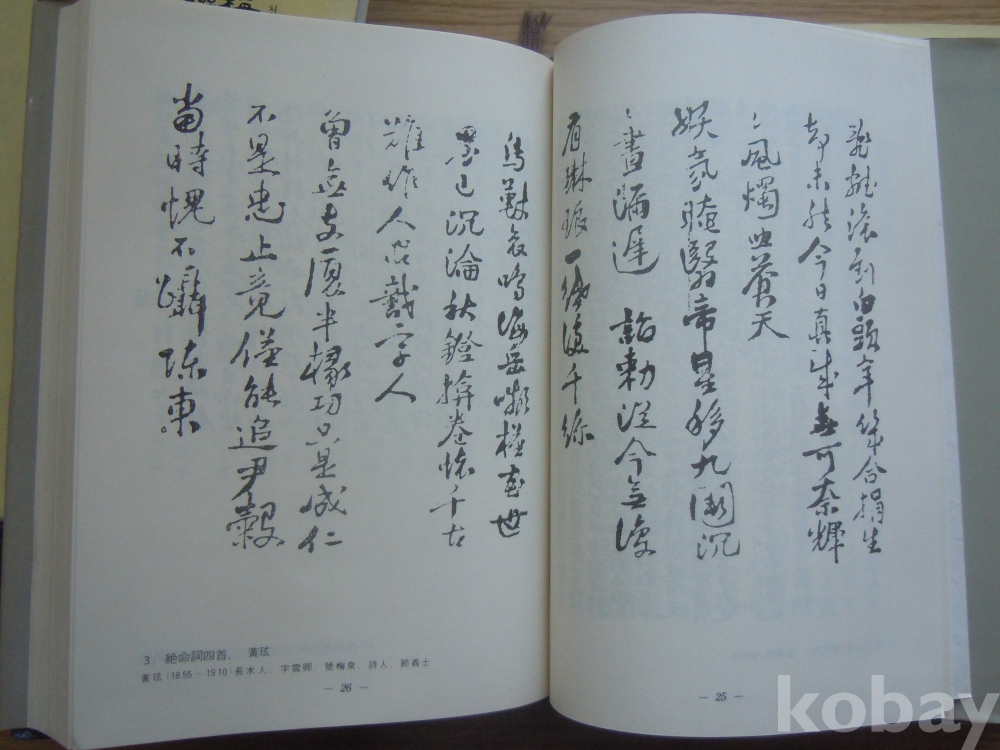 亂離滾到白頭年幾合捐生
却未然今日真成無可奈輝
〻風燭照蒼天
妖氛晻翳帝星移九闕沉
〻晝漏遲詔勅從今無復
有琳琅一紙淚千絲
鳥獸哀鳴海岳嚬槿花世
界已沉淪秋鐙揜卷懷千古
難作人間識字人
曾無支厦半椽功只是成仁
不是忠止竟僅能追尹穀
當時愧不躡陳東
3. 絶命詞四首, 黃玹
黃玹(1855~1910)長水人, 字雲卿, 號梅泉, 詩人, 節義士
— 26 —
— 25 —
kobay